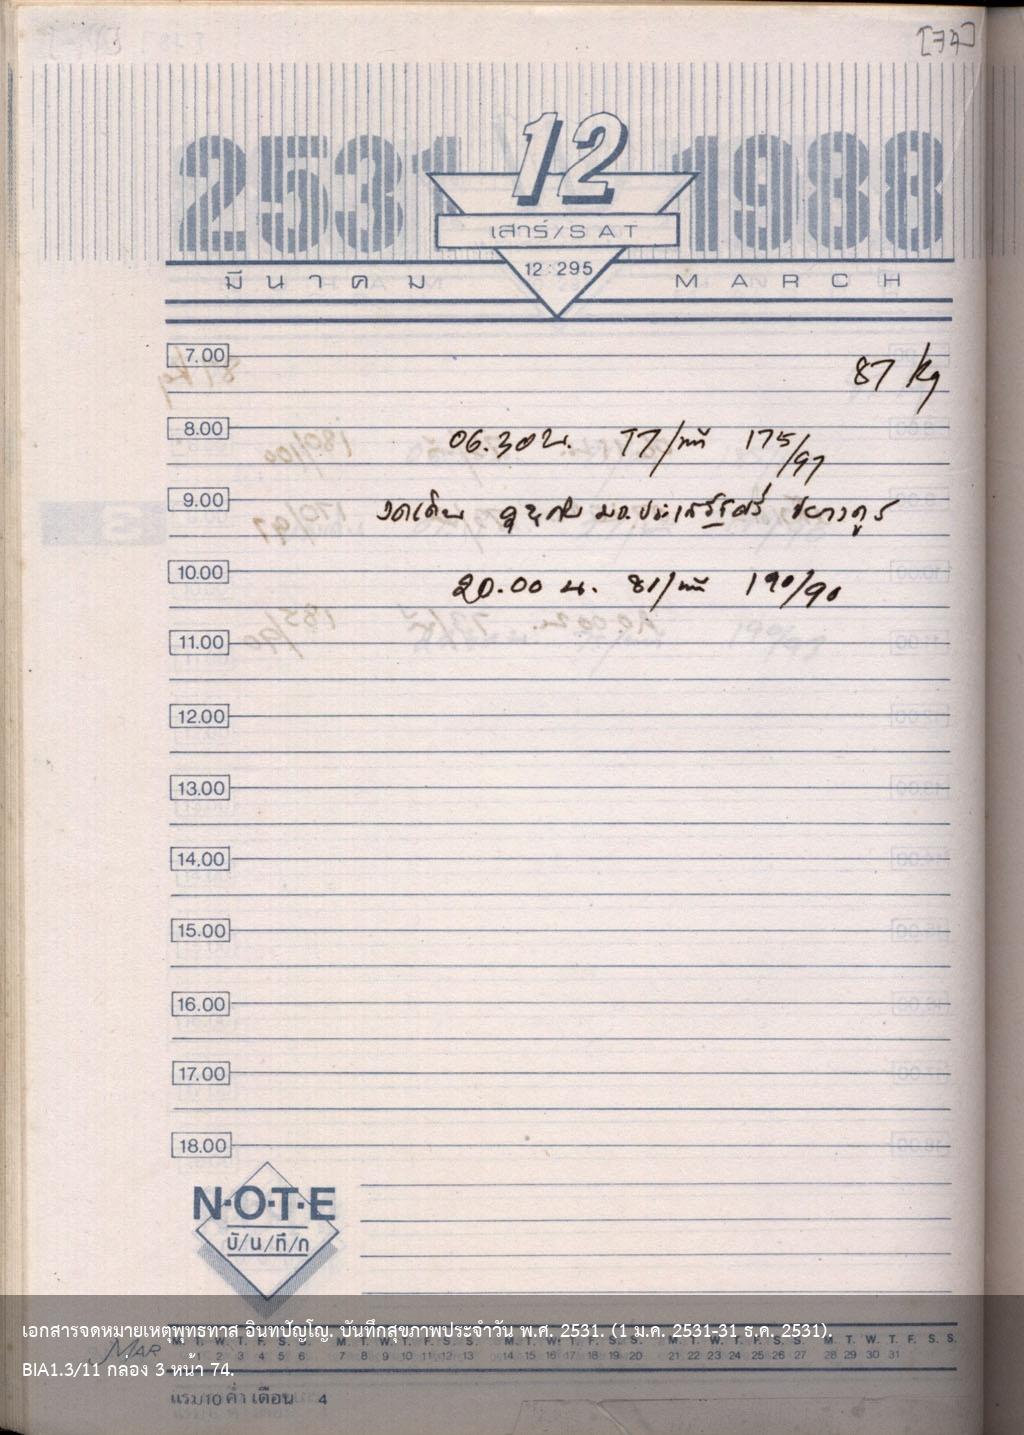 [74]
2531 12 1988
เสาร์/SAT
มีนาคม 12:295 MARCH
7.00
87 kg
8.00
06.30 น. 77/นาที 175/97
9.00
งดเดิน คุยกับ มจ.
10.00
20.00 น. 81/นาที 190/90
11.00
12.00
13.00
14.00
15.00
16.00
17.00
18.00
N·O·T·E
บั/น/ทึ/ก
เอกสารจดหมายเหตุพุทธทาส อินทปัญโญ. บันทึกสุขภาพประจำวัน พ.ศ. 2531. (1 ม.ค. 2531-31 ธ.ค. 2531).
MAR M. T. W. T. F. S. S. M. T. W. T. F. S. S. M. T. W. T. F. S. S. M. T. W. T. F. S. S. M. T. W. T. F. S. S.
1 2 3 4 5 6 7 8 9 10 11 12 13 14 15 16 17 18 19 20 21 22 23 24 25 26 27 28 29 30 31
BIA1.3/11 กล่อง 3 หน้า 74.
แรม 10 ค่ำ เดือน 4